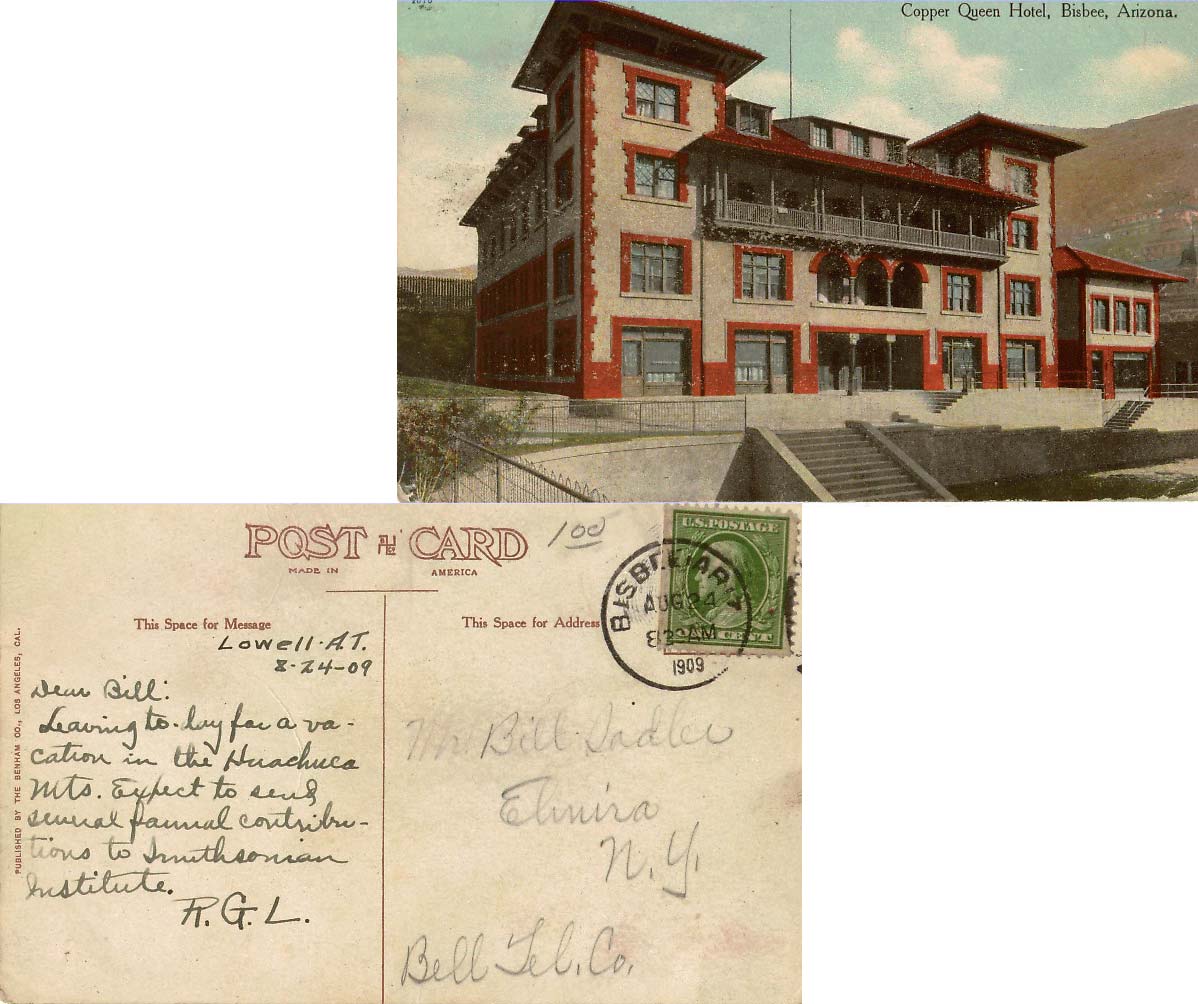 Copper Queen Hotel, Bisbee, Arizona.
POST CARD
MADE IN AMERICA
100
This Space for Message
This Space for Address
PUBLISHED BY THE BENHAM CO., LOS ANGELES, CAL.
Lowell. A.T.
8-24-09
Dear Bill:
Leaving to-day for a va-
cation in the Huachuca
Mts. Expect to send
several faunal contribu-
tions to Smithsonian
Institute.
R. G. L.
U.S. POSTAGE
BISBEE, ARIZ
AUG 24
8 30 AM
1909
Mr. Bill Sadler
Elmira
N. Y.
Bell Tel. Co.